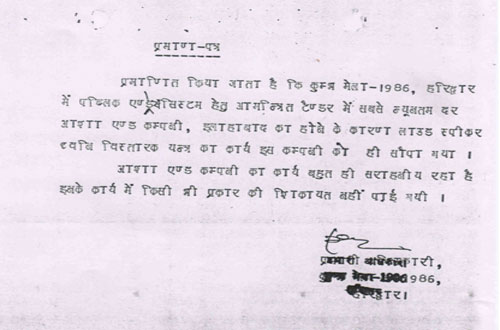 प्रमाण-पत्र
प्रमाणित किया जाता है कि कुम्भ मेला-1986, हरिद्वार
में पब्लिक एण्ड्रेसिस्टम हेतु आमन्त्रित टैण्डर में सबसे न्यूनतम दर
आशा एण्ड कम्पनी, इलाहाबाद का होने के कारण लाउड स्पीकर
ध्वनि विस्तारक यन्त्र का कार्य इस कम्पनी को ही सौंपा गया ।
आशा एण्ड कम्पनी का कार्य बहुत ही सराहनीय रहा है
इसके कार्य में किसी भी प्रकार की शिकायत नहीं पाई गयी ।
प्रभारी अधिकारी,
कुम्भ मेला-1986,
हरिद्वार।